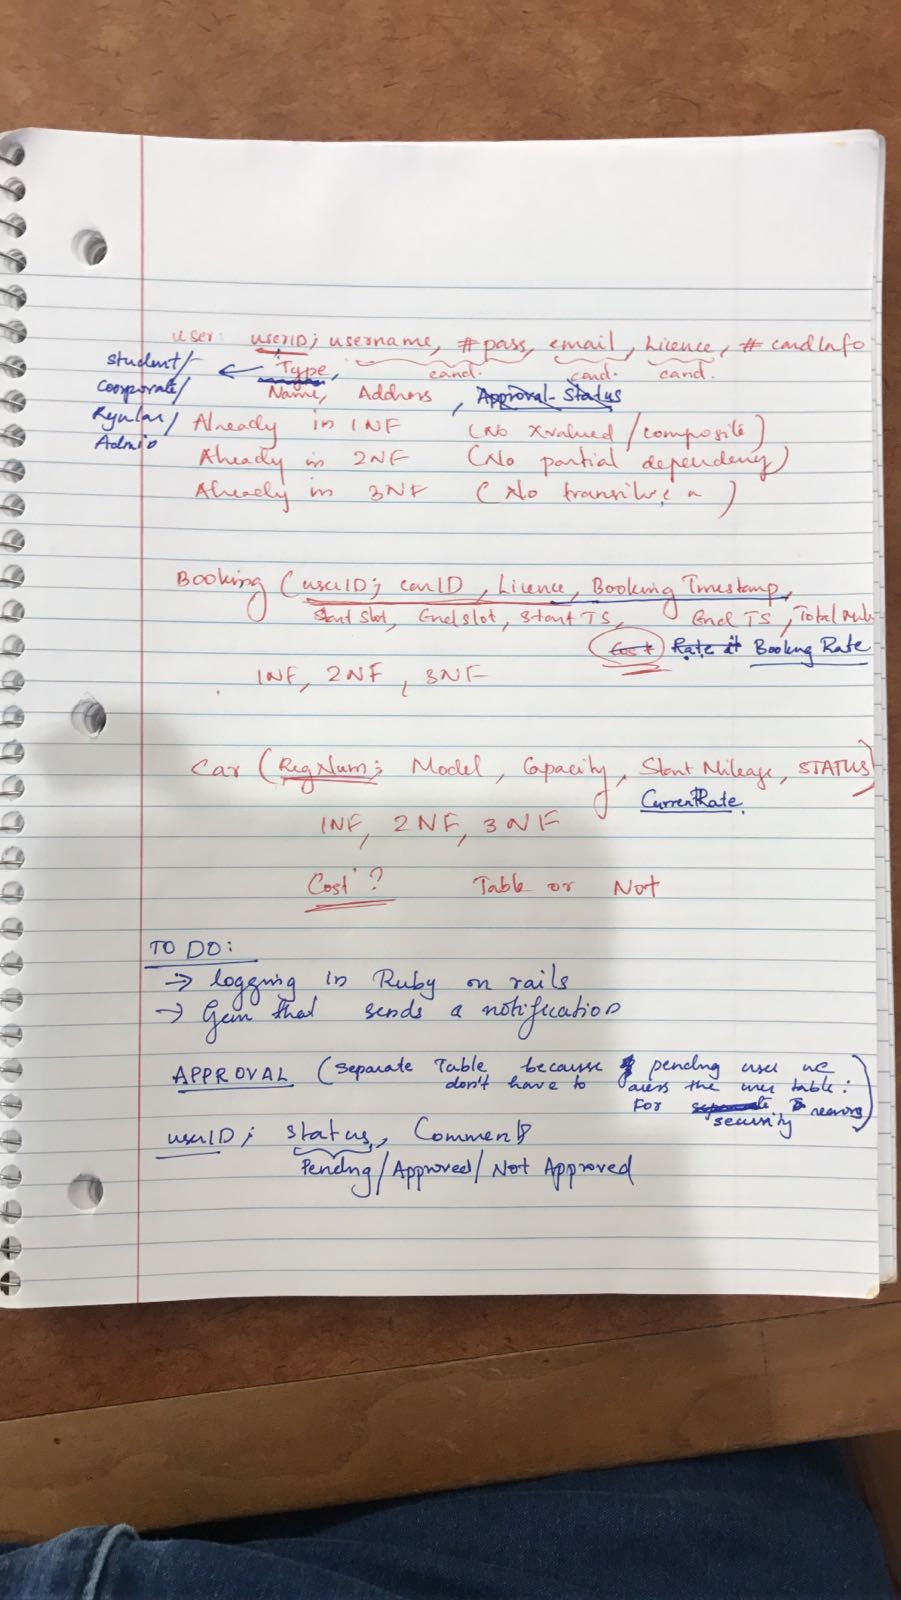 user: userID; username, #pass, email, Licence, # cardInfo
cand. cand. cand.
Student/ ← Type,
Coorporate/ Name, Address, Approval-Status
Regular/ Already in 1NF (No xvalued/composite)
Admin
Already in 2NF (No partial dependency)
Already in 3NF (No transitive " )
Booking (userID; carID, Licence, Booking Timestamp,
Start Slot, End slot, Start TS, End TS, Total
Cost Rate Booking Rate
1NF, 2NF, 3NF
Car (RegNum; Model, Capacity, Start Mileage, STATUS)
CurrentRate.
1NF, 2NF, 3NF
Cost? Table or Not
TO DO:
→ logging in Ruby on rails
→ Gem that sends a notification
APPROVAL (separate Table because pending user we
don't have to access the user table:
For security reasons)
userID; status, Comments
Pending/Approved/Not Approved